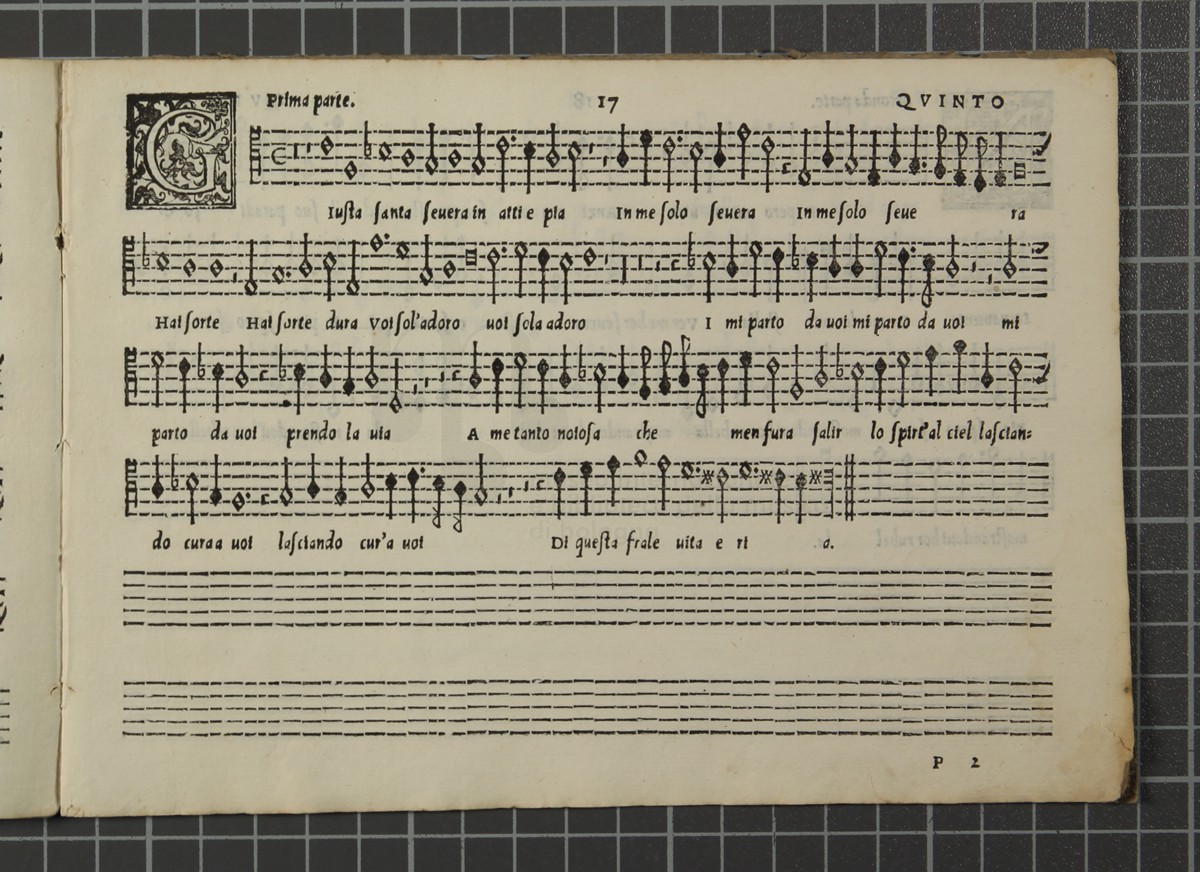 Prima parte. 17 QVINTO
G
Iusta santa seuera in atti e pia In me solo seuera In me solo seue ra
Hai sorte Hai sorte dura Voi sol'adoro uoi sola adoro I mi parto da uoi mi parto da uoi mi
parto da uoi prendo la uia A me tanto noiosa che men fura salir lo spirt'al ciel lascian=
do cura a uoi lasciando cur'a uoi Di questa frale uita e ri a.
P 2